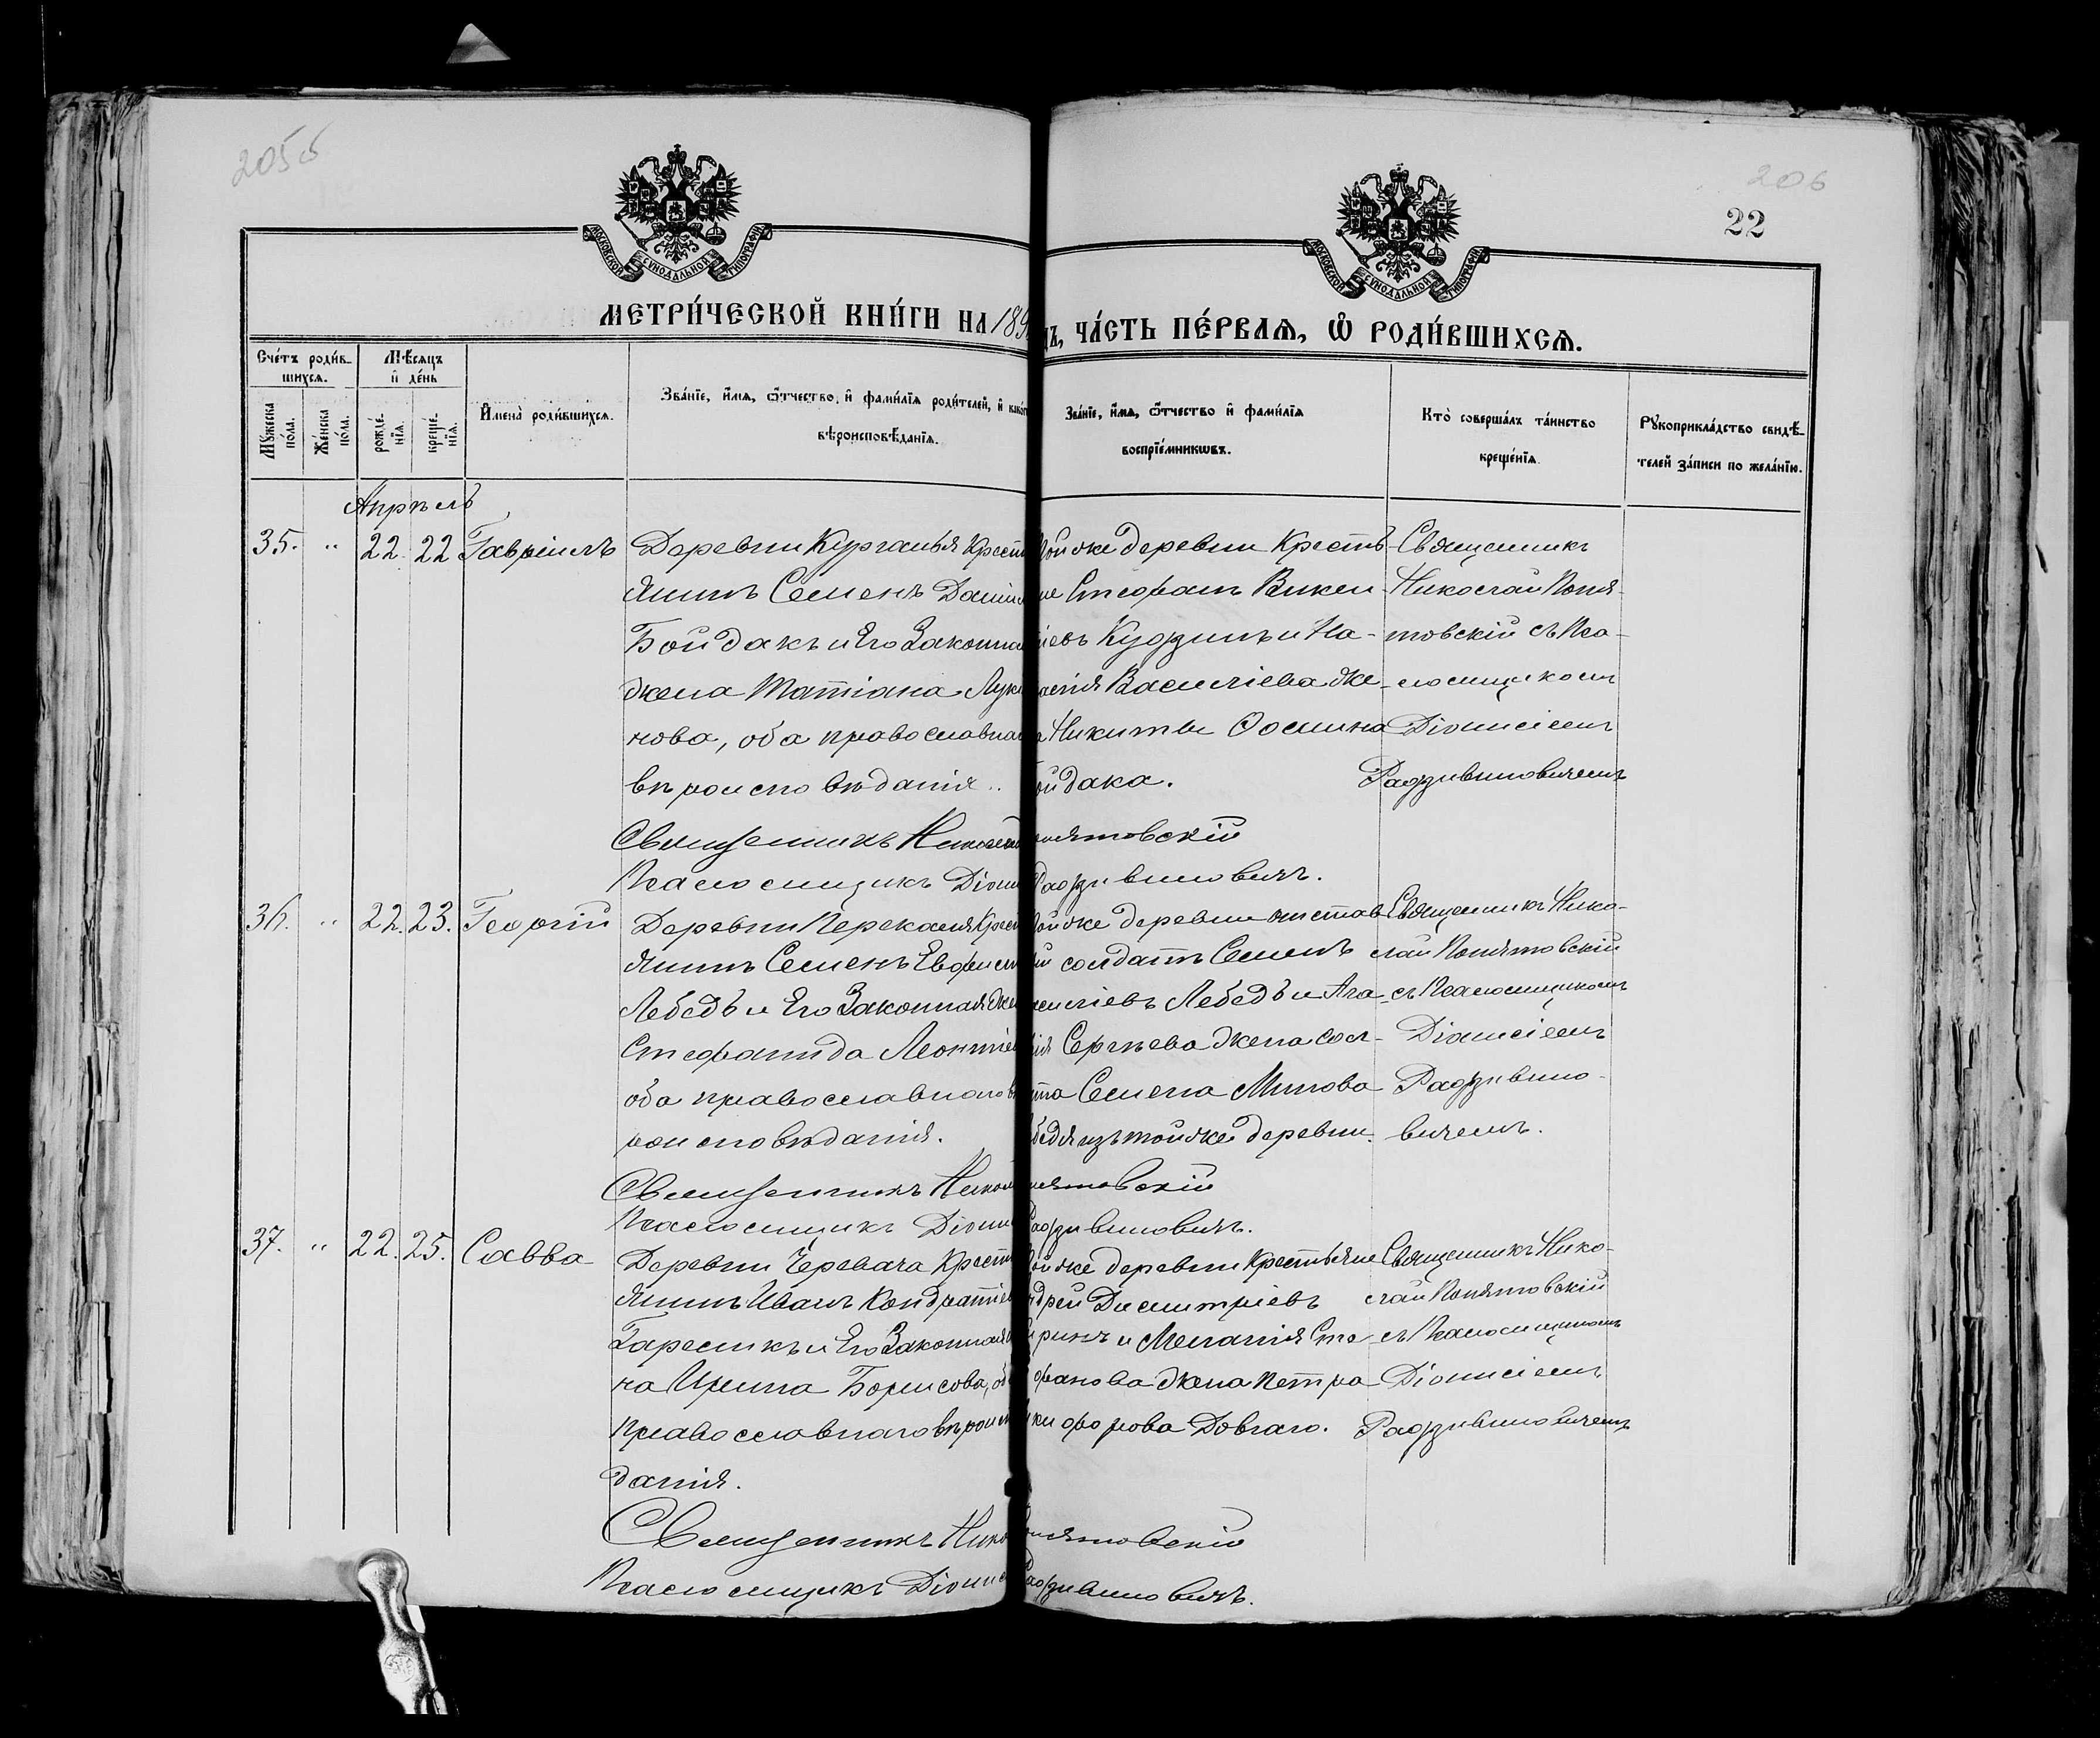 205б
206
22
МОСКОВСКОЙ СѴНОДАЛЬНОЙ ТИПОГРАФІИ
МОСКОВСКОЙ СѴНОДАЛЬНОЙ ТИПОГРАФІИ
МЕТРИ́ЧЕСКОЙ КНИ́ГИ НА 189
ЧА́СТЬ ПЕ́РВАѦ, Ѡ РОДИ́ВШИХСѦ.
Сче́тъ роди́в-
шихсѧ.
Мѣ́сѧцъ
и҆ де́нь
Мꙋжеска
по́ла.
Же́нска
по́ла.
рожде́-
нїѧ.
креще-
нїѧ.
И҆мена̀ роди́вшихсѧ.
Зва́нїе, и҆́мѧ, ѻ҆́тчество, и҆ фами́лїѧ роди́телей, и҆ како́г
вѣроисповѣ́данїѧ.
Зва́нїе, и҆́мѧ, ѻ҆́тчество и҆ фами́лїѧ
воспрїе́мникѡвъ.
Кто̀ соверша́лъ та́инство
креще́нїѧ.
Рꙋкоприкла́дство свидѣ́-
телей за́писи по жела́нїю.
Апрѣль
35. " 22. 22 Гавріилъ Деревни Курганья Крестъ
янинъ Семенъ Даніи
Бойдакъ и Его Законна
жена Татіана Лукі
нова, оба православна
вѣроисповѣданія.
той же деревни Кресть-
не Стефанъ Викен-
іевъ Кудринъ и На-
асія Василіева же-
а Никиты Ѳомина
ойдака.
Священникъ
Николай Поня-
товскій съ Пса-
ломщикомъ
Діонисіемъ
Радзивиновичемъ
Священникъ Никола онятовскій
Псаломщикъ Діони Радзивиновичъ.
36. " 22. 23. Георгій Деревни Перекаля Крест
янинъ Семенъ Евфим
Лебедь и Его Законная же
Стефанида Леонтіе
оба православнаго в
роисповѣданія.
той же деревни отстав-
й солдатъ Семенъ
силіевъ Лебедь и Ага-
ія Сергѣева жена сол-
та Семена Минова
бедя изъ той же деревни.
Священникъ Нико-
лай Понятовскій
съ Псаломщикомъ
Діонисіемъ
Радзивино-
вичемъ.
Священникъ Никол нятовскій
Псаломщикъ Діони Радзивиновичъ.
37. " 22. 25. Савва Деревни Черевача Крест
янинъ Иванъ Кондратіе
Гаресикъ и Его Законная
на Ирина Борисова, об
православнаго вѣроис
данія.
ой же деревни Крестьяне
ндрей Димитріевъ
и Меланія Сте-
фанова жена Петра
кифорова Довгаго.
Священникъ Нико-
лай Понятовскій
съ Псаломщикомъ
Діонисіемъ
Радзивиновичемъ
Священникъ Нико онятовскій
Псаломщикъ Діонис Радзивиновичъ.